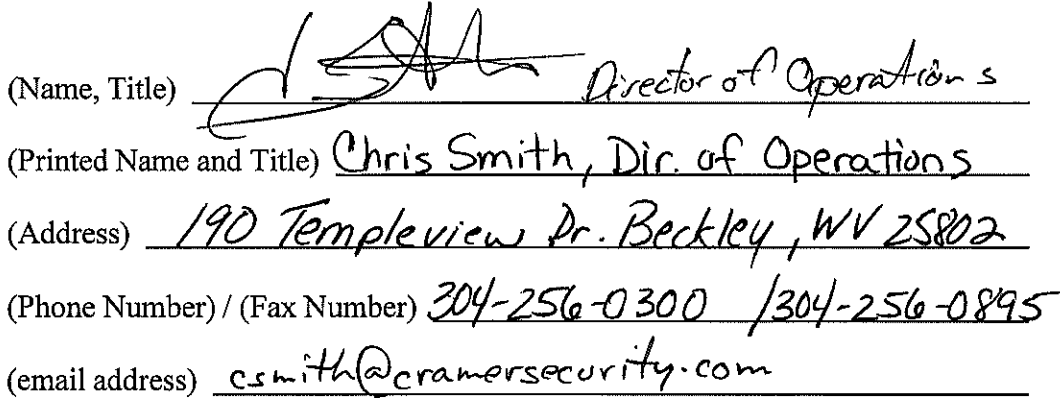 (Name, Title) Director of Operations
(Printed Name and Title) Chris Smith, Dir. of Operations
(Address) 190 Templeview Dr. Beckley, WV 25802
(Phone Number) / (Fax Number) 304-256-0300 /304-256-0895
(email address) csmith@cramersecurity.com